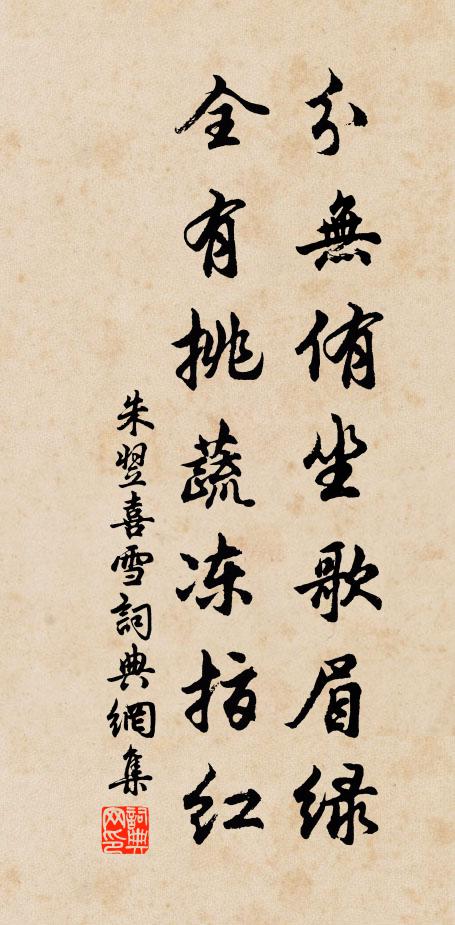 分無侑坐歌眉綠
全有挑蔬冻指红
朱翌喜雪詞典網集
詞典网印